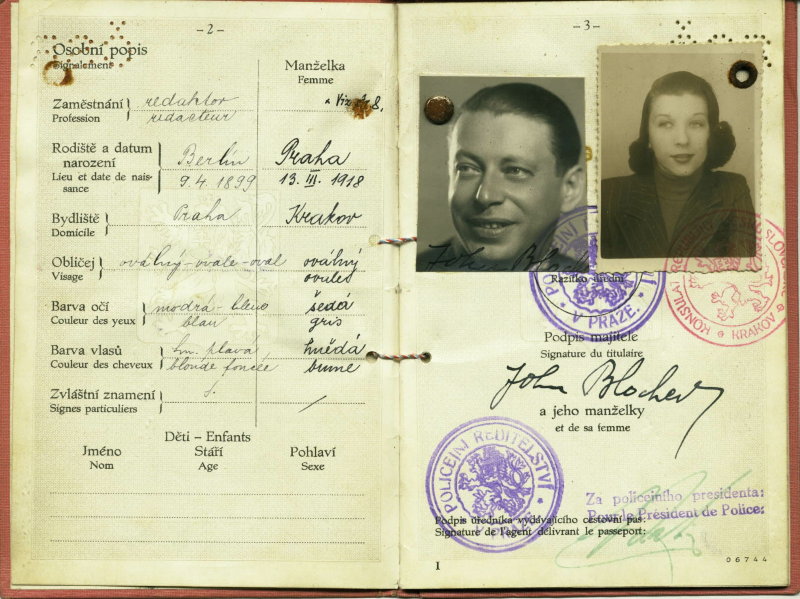 - 2 -
Osobní popis
Signalement
Manželka
Femme
Zaměstnání
Profession
redaktor
redacteur
Rodiště a datum
narození
Lieu et date de nais-
sance
Berlín
9.4.1899
Praha
13. III. 1918
Bydliště
Domicile
Praha
Krakov
Obličej
Visage
oválný-ovale-oval
oválný
ovules
Barva očí
Couleur des yeux
modrá-bleus
blau
šedá
gris
Barva vlasů
Couleur des cheveux
tm. plavá
blonde foncée
hnědá
brune
Zvláštní znamení
Signes particuliers
Děti – Enfants
Jméno
Nom
Stáří
Age
Pohlaví
Sexe
- 3 -
John
Razítko úřední
POLICEJNÍ
V PRAZE.
KONSULÁT
KRAKOV
Podpis majitele
Signature du titulaire
John Blocher
a jeho manželky
et de sa femme
POLICEJNÍ ŘEDITELSTVÍ
V PRAZE
Za policejního presidenta:
Pour le Président de Police:
Podpis úředníka vydávajícího cestovní pas:
Signature de l'agent délivrant le passeport:
1
06744